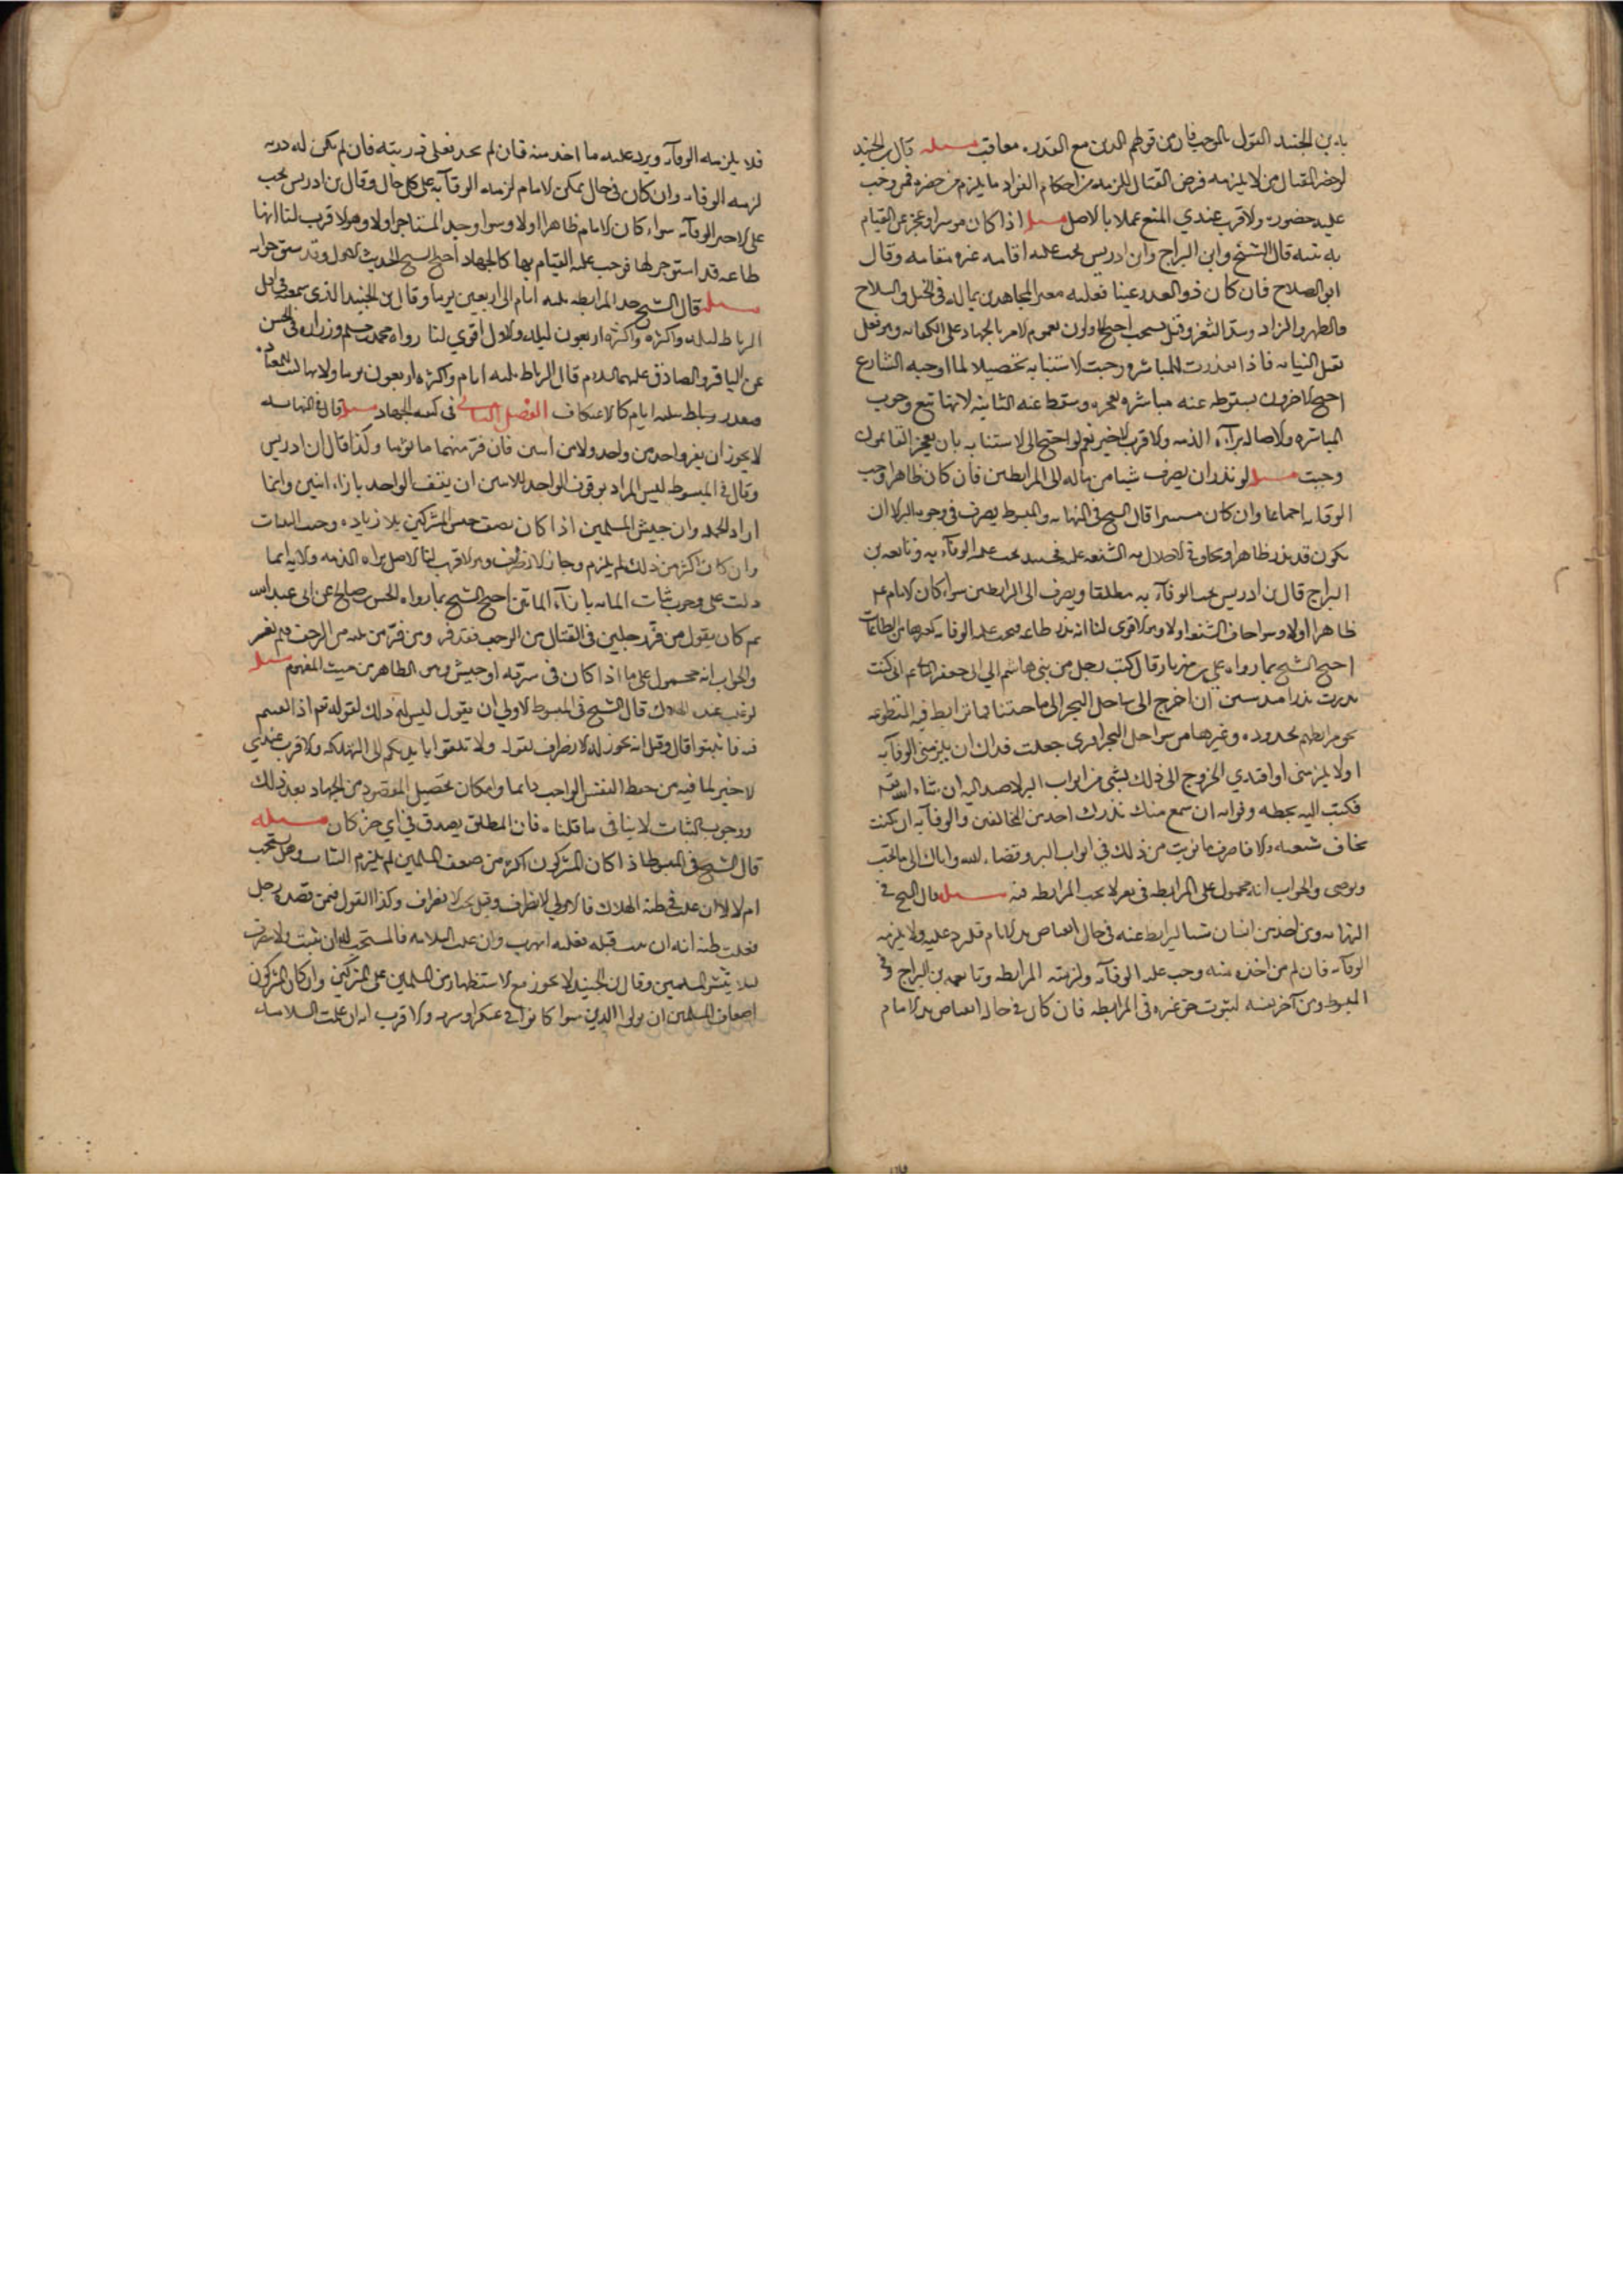 بادين الجنيد القول بالموجب فان من قولهم الدين مع القدرة معاقب مسله قال بن الجنيد
لو حضر القتال من لا يلزمه فرض القتال للزمه من احكام الفرار ما يلزم من حضره ممن وجب
عليه حضوره والاقرب عندي المنع عملا بالاصل مسله اذا كان موسرا وعجز عن القيام
به بنفسه قال الشيخ وابن البراج وابن ادريس يجب عليه اقامه غيره مقامه وقال
ابو الصلاح فان كان ذو العذر غنيا فعليه معونه المجاهدين بماله في الخيل والسلاح
والظهر والزاد وسد الثغر وقيل يستحب احتج الاولون بعموم الامر بالجهاد على الكفايه وهو فعل
يقبل النيابه فاذا تعذرت المباشره وجبت الاستنابه تحصيلا لما اوجبه الشارع
احتج الاخرون بسقوطه عنه مباشره لعجزه وسقط عنه الثانيه لانها تتبع وجوب
المباشره ولاصاله براءه الذمه والاقرب الاخير نعم لو احتيج الى الاستنابه بان يعجز القائمون
وجبت مسله لو نذر ان يصرف شيا من ماله الى المرابطين فان كان ظاهرا وجب
الوفاء به اجماعا وان كان مستترا قال الشيخ في النهايه والمبسوط يصرف في وجوه البر الا ان
يكون قد نذر ظاهرا ويخاف في الاخلال به الشنعه عليه فحينئذ يجب عليه الوفاء به وتابعه بن
البراج قال بن ادريس يجب الوفاء به مطلقا ويصرف الى المرابطين سواء كان الامام ع
ظاهرا اولا وسوا خاف الشنعه اولا وهو الاقوى لنا انه نذر طاعه فيجب عليه الوفاء به كغيرها من الطاعات
احتج الشيخ بما رواه علي بن مهزيار قال كتب رجل من بني هاشم الى ابي جعفر الثاني ع اني كنت
نذرت نذرا منذ سنين ان اخرج الى ساحل البحر الى ناحيتنا مما نرابط فيه المتطوعه
نحو مرابطهم بجده وغيرها من سواحل البحر افترى جعلت فداك ان يلزمني الوفاء به
اولا يلزمني او افتدي الخروج الى ذلك بشي من ابواب البر لاصير اليه ان شاء الله تع
فكتب اليه بخطه وقراته ان سمع منك نذرك احد من المخالفين والوفاء به ان كنت
تخاف شنعته والا فاصرف ما نويت من ذلك في ابواب البر وفقنا الله واياك الى ما يحب
ويرضى والجواب انه محمول على المرابطه في ثغر لا يجب المرابطه فيه مسله قال الشيخ في
النهايه ومن اخذ من انسان شيا ليرابط عنه في حال انقباض يد الامام فليرده عليه ولا يلزمه
الوفاء به فان لم يجد من اخذه منه وجب عليه الوفاء به ولزمته المرابطه وتابعه بن البراج وفي
المبسوط ومن آجر نفسه لينوب عن غيره في المرابطه فان كان في حال انقباض يد الامام
فلا يلزمه الوفاء به ويرد عليه ما اخذ منه فان لم يجده فعلى ورثته فان لم يكن له ورثه
لزمه الوفاء به وان كان في حال يمكن الامام لزمه الوفاء به على كل حال وقال بن ادريس يجب
على الاجير الوفاء به سواء كان الامام ظاهرا اولا وسوا وجد المستاجر اولا وهو الاقرب لنا انها
طاعه قد استوجر لها فوجب عليه القيام بها كالجهاد احتج الشيخ بالحديث الاول وقد سبق جوابه
مسله قال الشيخ حد المرابطه ثلثه ايام الى اربعين يوما وقال بن الجنيد الذي سمي في اقل
الرباط ليله واكثره اربعون ليله والاول اقوى لنا رواه محمد بن مسلم وزراره في الحسن
عن الباقر والصادق عليهما السلام قال الرباط ثلثه ايام واكثره اربعون يوما ولانها
فيقدر باقل ثلثه ايام كالاعتكاف الفصل الثاني في كيفيه الجهاد مسله قال في النهايه
لا يجوز ان يفر واحد من واحد ولا من اثنين فان فر منهما كان ماثوما وكذا قال ابن ادريس
وقال في المبسوط ليس المراد بوقوف الواحد للاثنين ان يقف الواحد بازاء اثنين وانما
اراد الجمله وان جيش المسلمين اذا كان نصف جيش المشركين بلا زياده وجب الثبات
وان كان اكثر من ذلك لم يلزم وجاز الانصراف وهو الاقرب لنا الاصل براءه الذمه والايه انما
دلت على وجوب ثبات المائه بازاء المائتين احتج الشيخ بما رواه الحسن بن صالح عن ابي عبد الله
ع كان يقول من فر من رجلين في القتال من الزحف فقد فر ومن فر من ثلثه من الزحف فلم يفر
والجواب انه محمول على ما اذا كان في سريه او جيش وهو الظاهر من حيث المفهوم مسله
لو غلب عنده الهلاك قال الشيخ في المبسوط الاولى ان يقول ليس له ذلك لقوله تع اذا لقيتم
فئه فاثبتوا قال وقيل انه يجوز له الانصراف لقوله ولا تلقوا بايديكم الى التهلكه والاقرب عندي
الاخير لما فيه من حفظ النفس الواجب دايما وامكان تحصيل المقصود من الجهاد بعد ذلك
ووجوب الثبات لا ينافي ما قلناه فان المطلق يصدق في اي جزء كان مسله
قال الشيخ في المبسوط اذا كان المشركون اكثر من ضعف المسلمين لم يلزم الثبات وهل يستحب
ام لا الا ان غلب في ظنه الهلاك فالاولى الانصراف وقيل يجب الانصراف وكذا القول فيمن قصده رجل
فغلب في ظنه انه ان ثبت قتله فعليه الهرب وان غلب السلامه فالمستحب له ان يثبت ولا ينصرف
ليلا ينكسر المسلمين وقال بن الجنيد لا يجوز مع الاستظهار من المسلمين على المشركين وان كان المشركون
اضعاف المسلمين ان يولوا الدبر سوا كانوا في عسكر او سريه والاقرب انه ان غلب السلامه